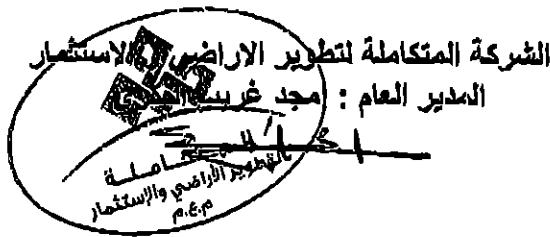 الشركة المتكاملة لتطوير الاراضي والاستثمار
المدير العام : مجد غريب
لتطوير الأراضي والإستثمار
م.ع.م